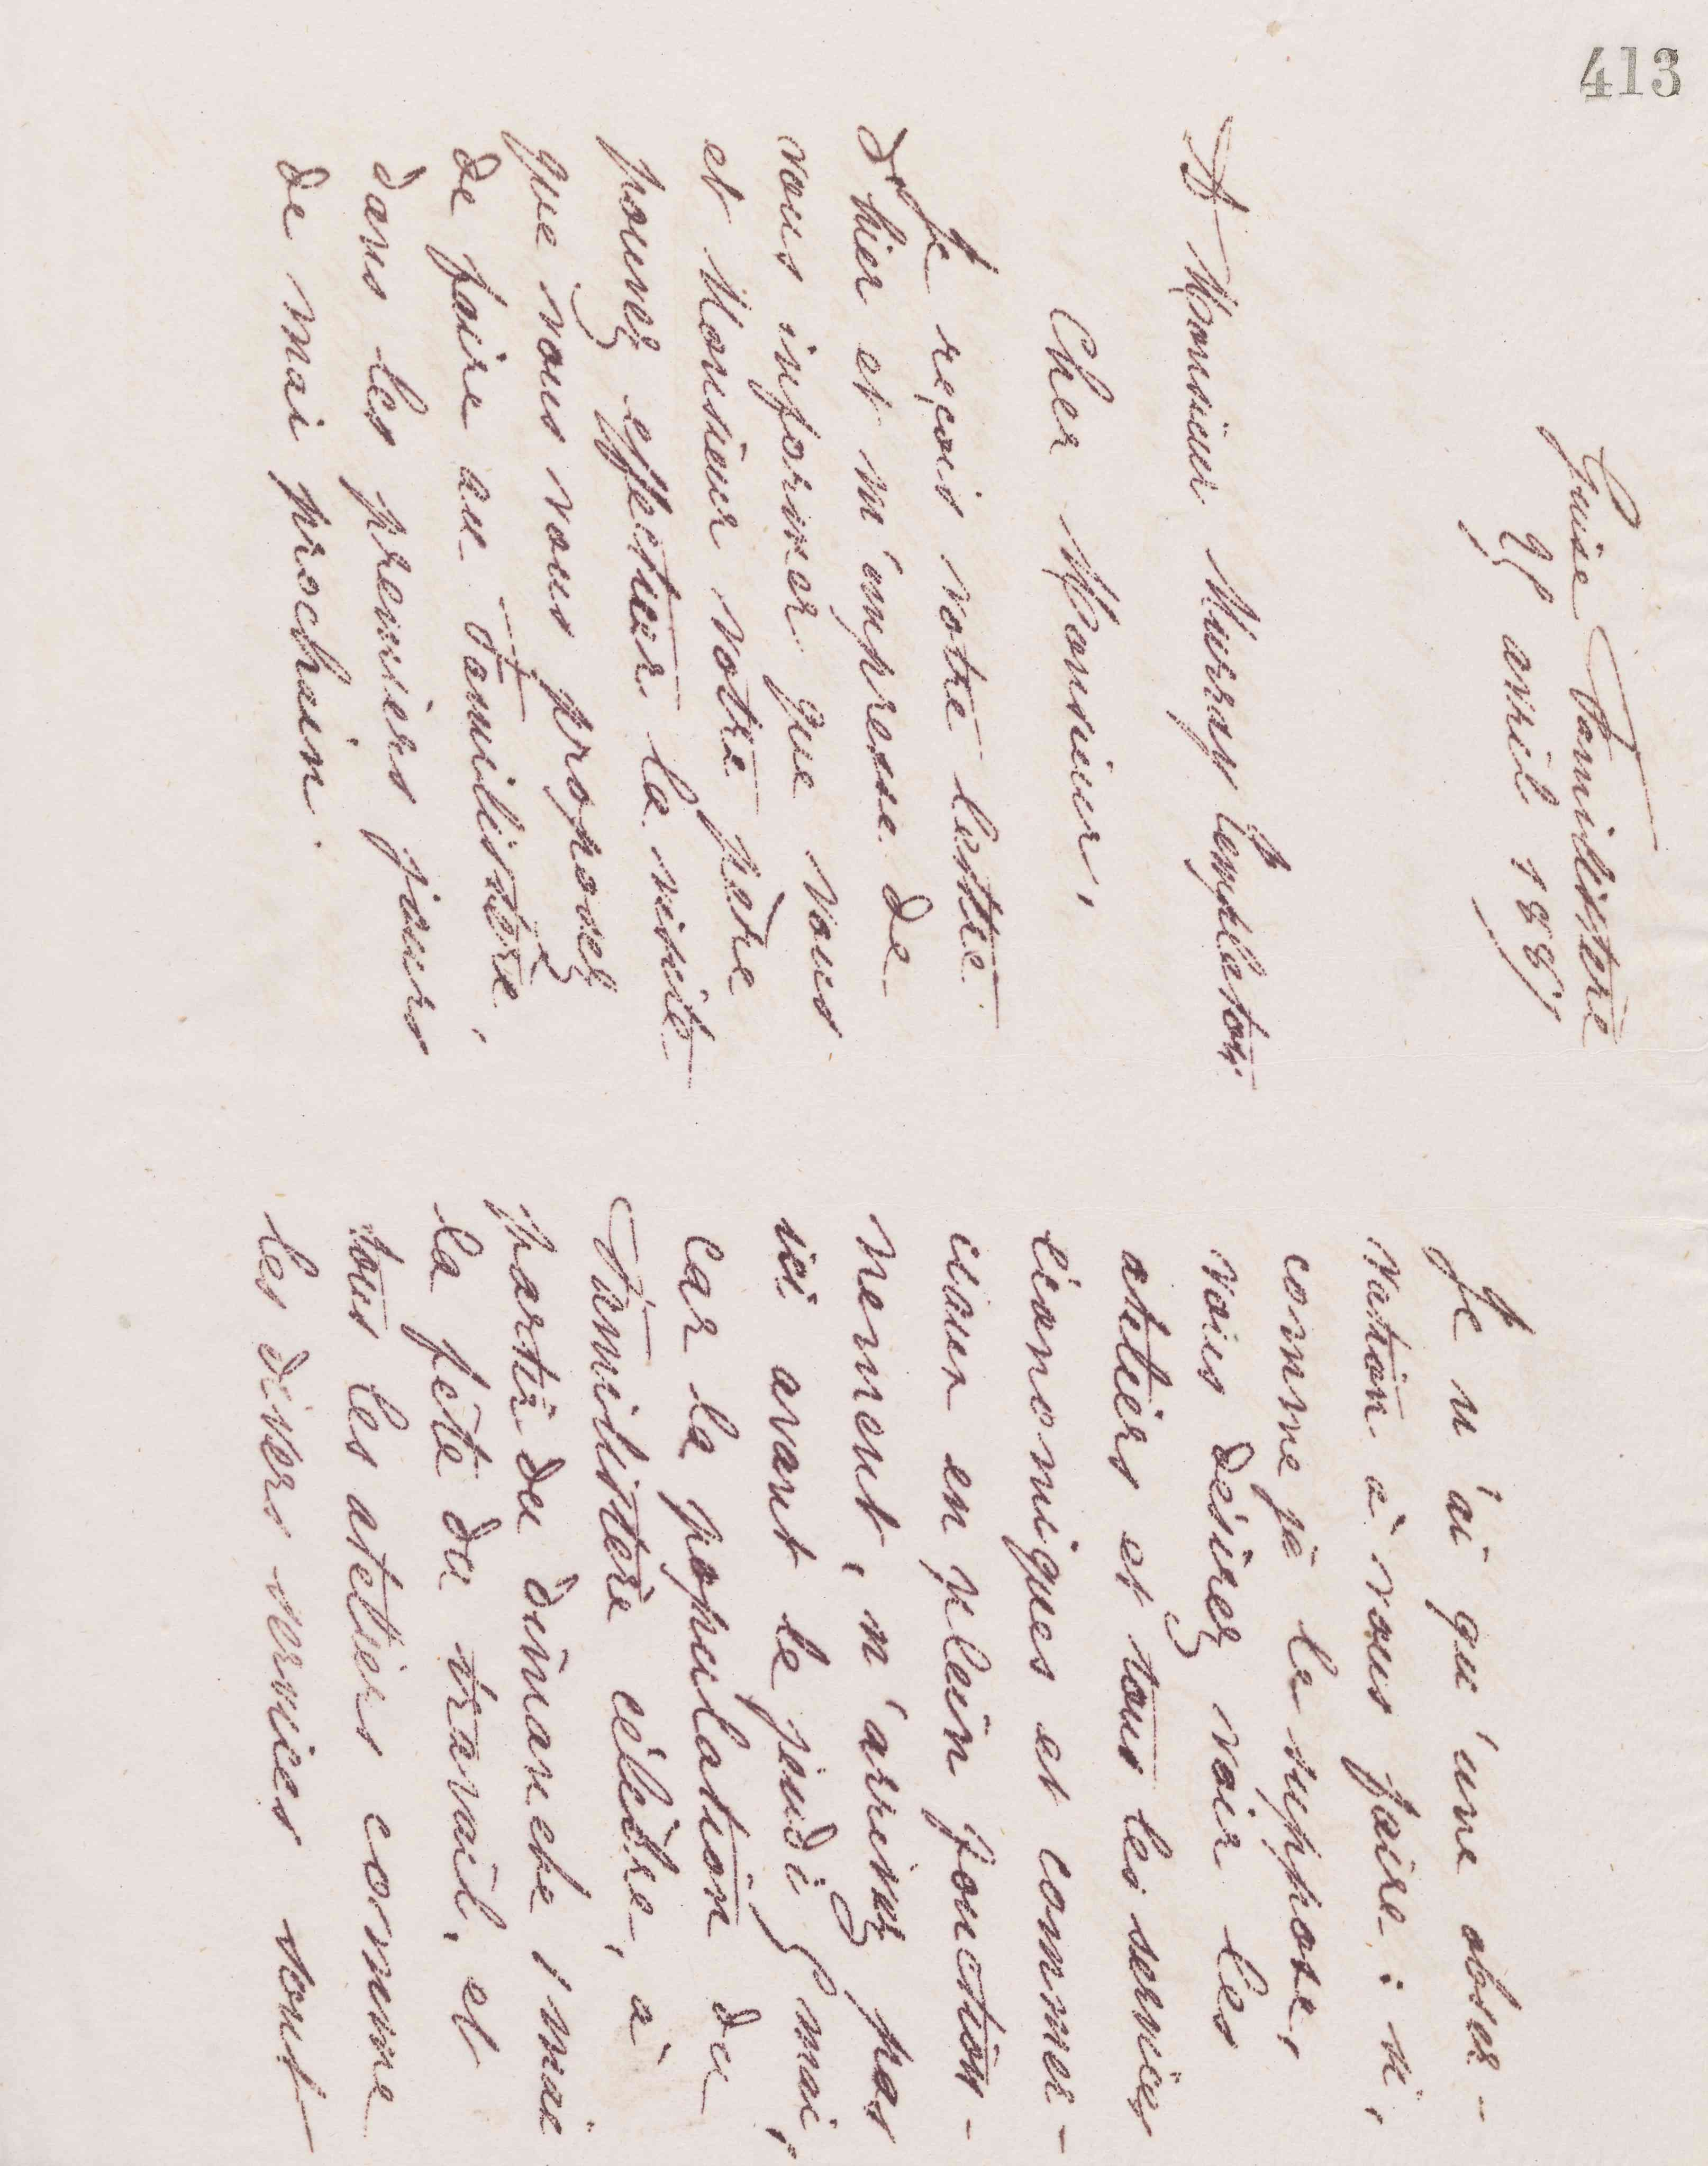 413
Guise Familistère
25 avril 1887
A Monsieur Murray Templeton
Cher Monsieur,
Je reçois votre lettre
d'hier et m'empresse de
vous informer que vous
et Monsieur votre père
pouvez effectuer la visite
que vous vous proposez
de faire au Familistère,
dans les premiers jours
de mai prochain.
Je n'ai qu'une obser-
vation à vous faire : si,
comme je le suppose,
vous désirez voir les
ateliers et tous les services
économiques et commer-
ciaux en plein fonction-
nement, n'arrivez pas
ici avant le jeudi 5 mai,
car la population du
Familistère célèbre, à
partir du dimanche 1 mai
la fête du travail, et
tous les ateliers comme
les divers services sont